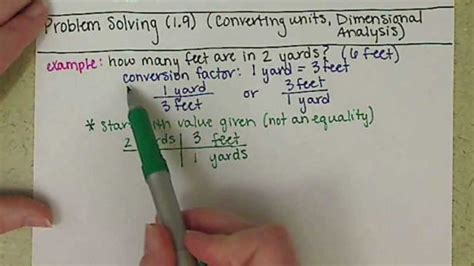 Problem Solving (1.9) (Converting units, Dimensional Analysis)
example: how many feet are in 2 yards? (6 feet)
conversion factor: 1 yard = 3 feet
1 yard or 3 feet
3 feet 1 yard
* Start with value given (not an equality)
2 yards 3 feet
1 yards